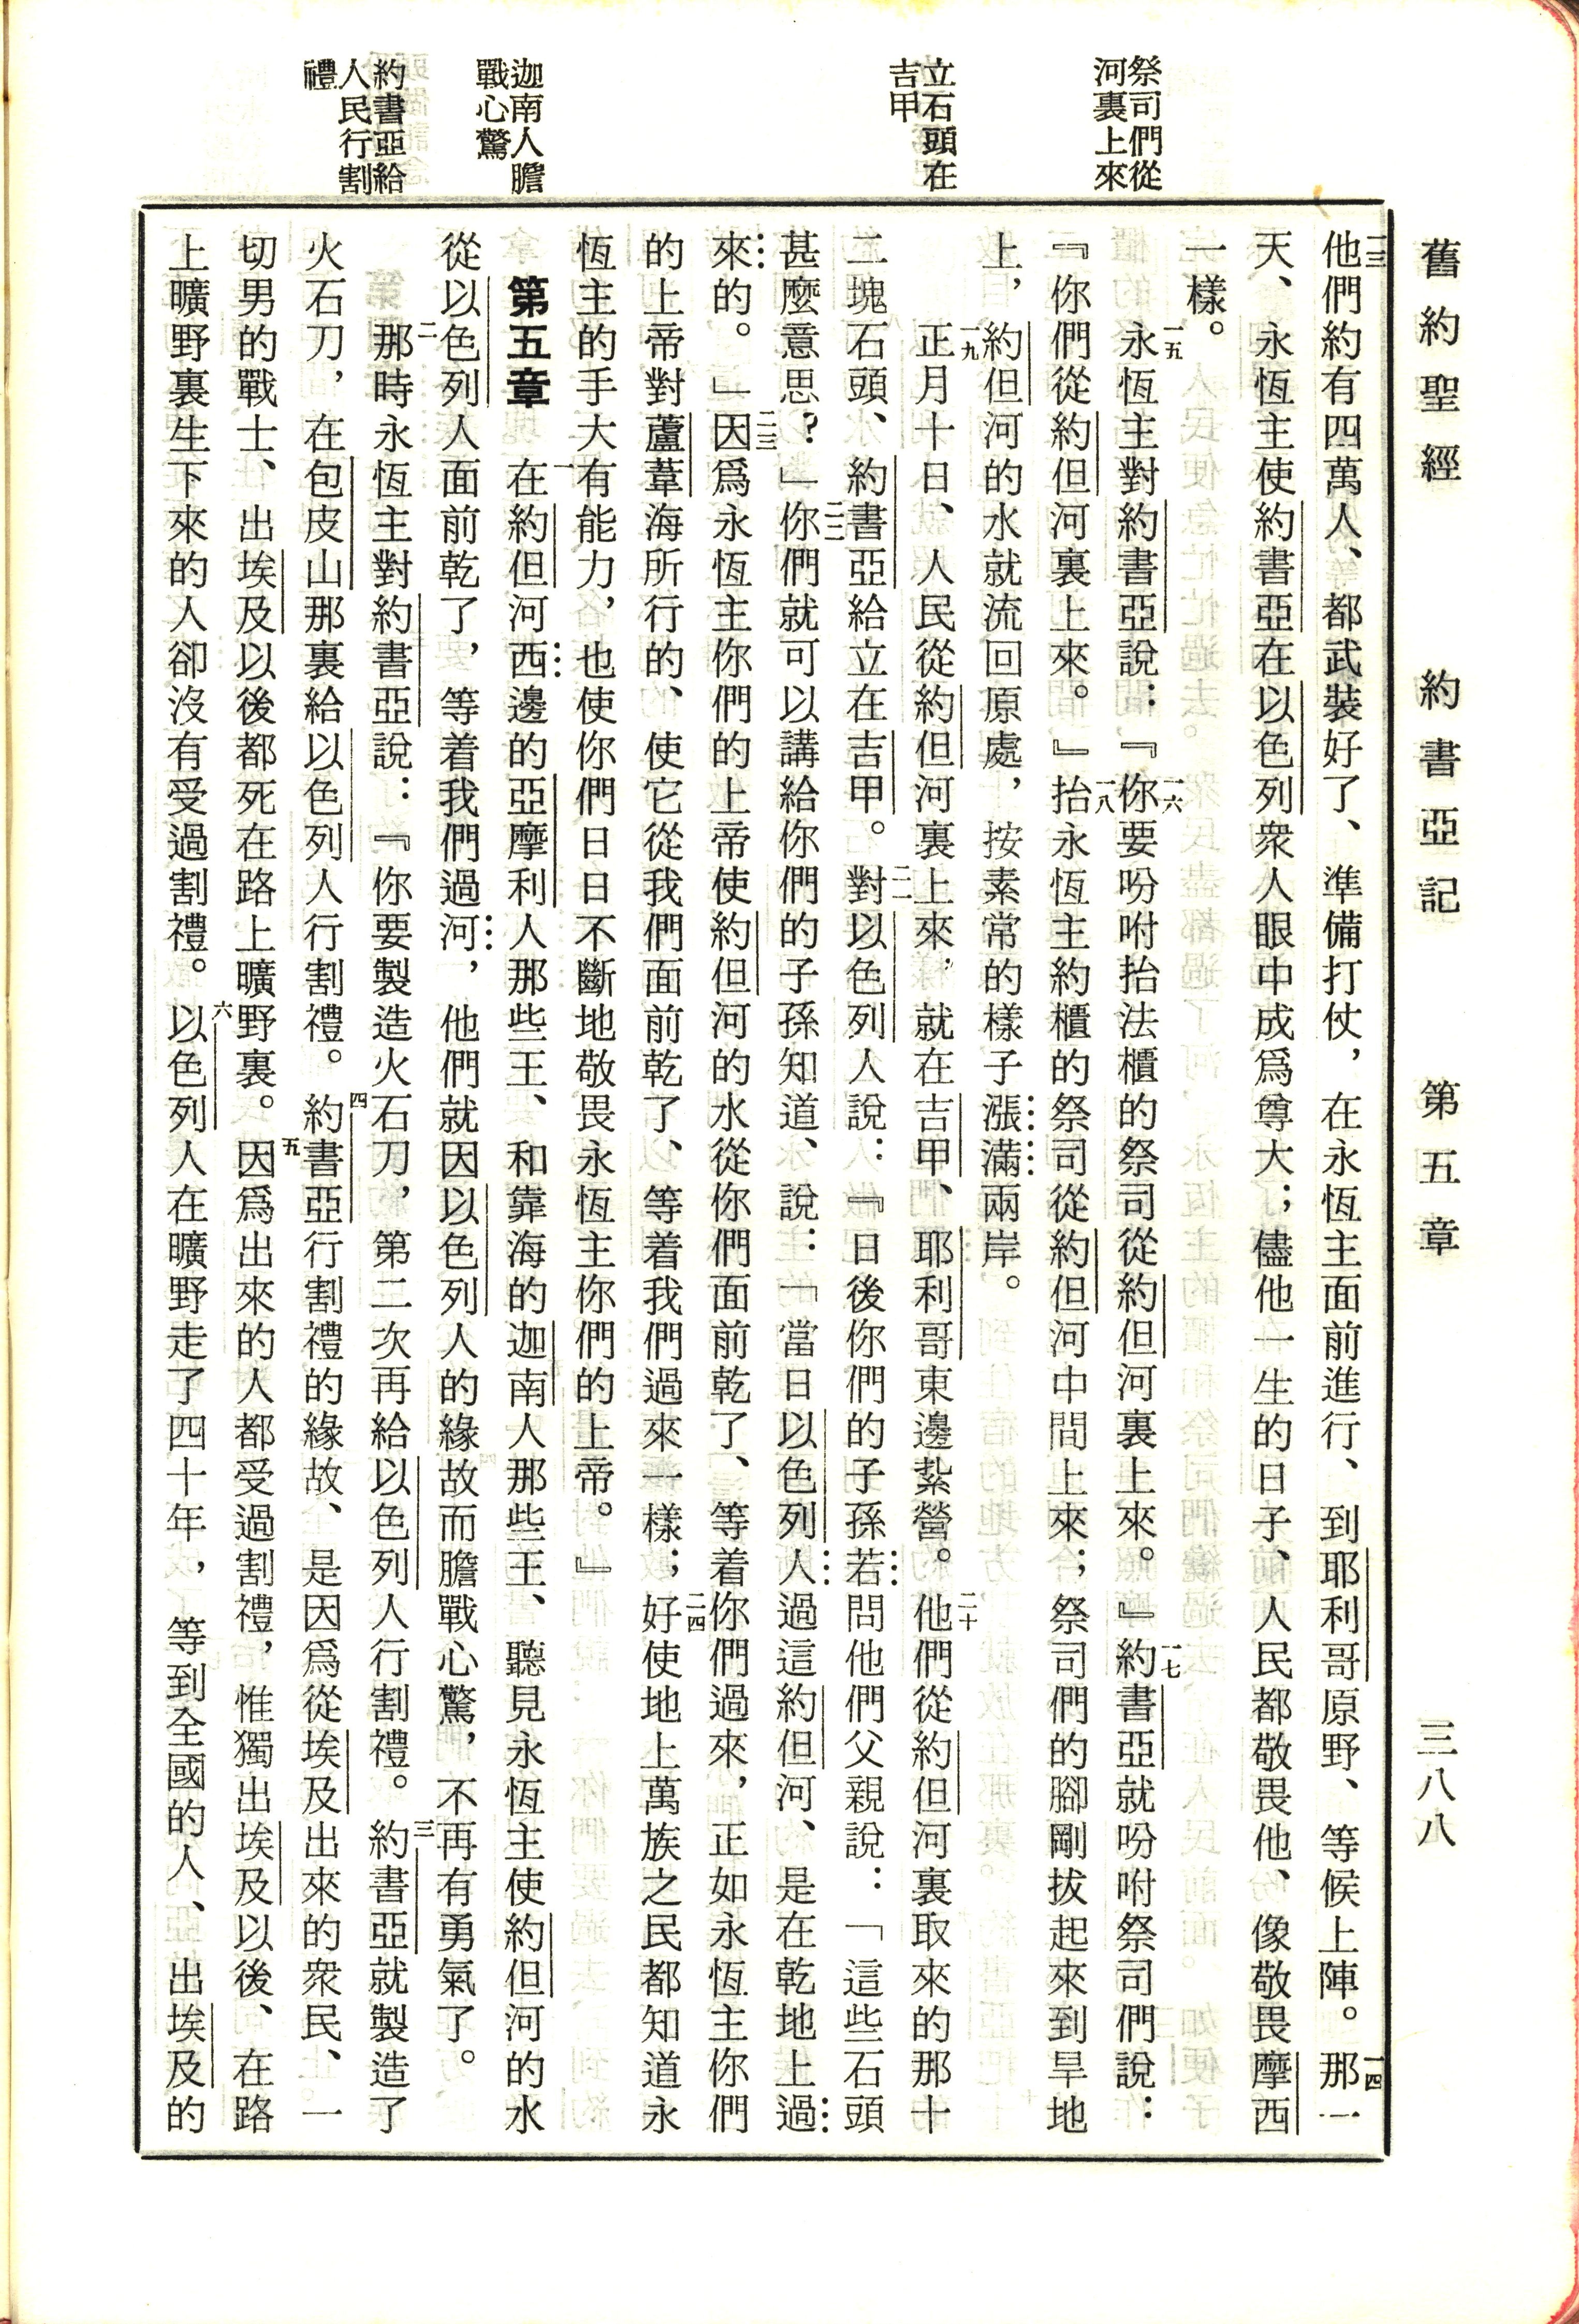 舊約聖經　約書亞記　第五章　三八八
祭司們從
河裏上來
立石頭在
吉甲
迦南人膽
戰心驚
約書亞給
人民行割
禮
一三他們約有四萬人、都武裝好了、準備打仗，在永恆主面前進行、到耶利哥原野、等候上陣。一四那一
天、永恆主使約書亞在以色列衆人眼中成爲尊大；儘他一生的日子、人民都敬畏他、像敬畏摩西
一樣。
一五永恆主對約書亞說：『一六你要吩咐抬法櫃的祭司從約但河裏上來。』一七約書亞就吩咐祭司們說：
『你們從約但河裏上來。』一八抬永恆主約櫃的祭司從約但河中間上來；祭司們的腳剛拔起來到旱地
上，約但河的水就流回原處，按素常的樣子漲滿兩岸。
一九正月十日、人民從約但河裏上來，就在吉甲、耶利哥東邊紮營。二十他們從約但河裏取來的那十
二塊石頭、約書亞給立在吉甲。二一對以色列人說：『日後你們的子孫若問他們父親說：「這些石頭
甚麼意思？」二二你們就可以講給你們的子孫知道、說：「當日以色列人過這約但河、是在乾地上過
來的。」二三因爲永恆主你們的上帝使約但河的水從你們面前乾了、等着你們過來，正如永恆主你們
的上帝對蘆葦海所行的、使它從我們面前乾了、等着我們過來一樣；二四好使地上萬族之民都知道永
恆主的手大有能力，也使你們日日不斷地敬畏永恆主你們的上帝。』
第五章　一在約但河西邊的亞摩利人那些王、和靠海的迦南人那些王、聽見永恆主使約但河的水
從以色列人面前乾了，等着我們過河，他們就因以色列人的緣故而膽戰心驚，不再有勇氣了。
二那時永恆主對約書亞說：『你要製造火石刀，第二次再給以色列人行割禮。三約書亞就製造了
火石刀，在包皮山那裏給以色列人行割禮。四約書亞行割禮的緣故、是因爲從埃及出來的衆民、一
切男的戰士、出埃及以後都死在路上曠野裏。五因爲出來的人都受過割禮，惟獨出埃及以後、在路
上曠野裏生下來的人卻沒有受過割禮。六以色列人在曠野走了四十年，等到全國的人、出埃及的